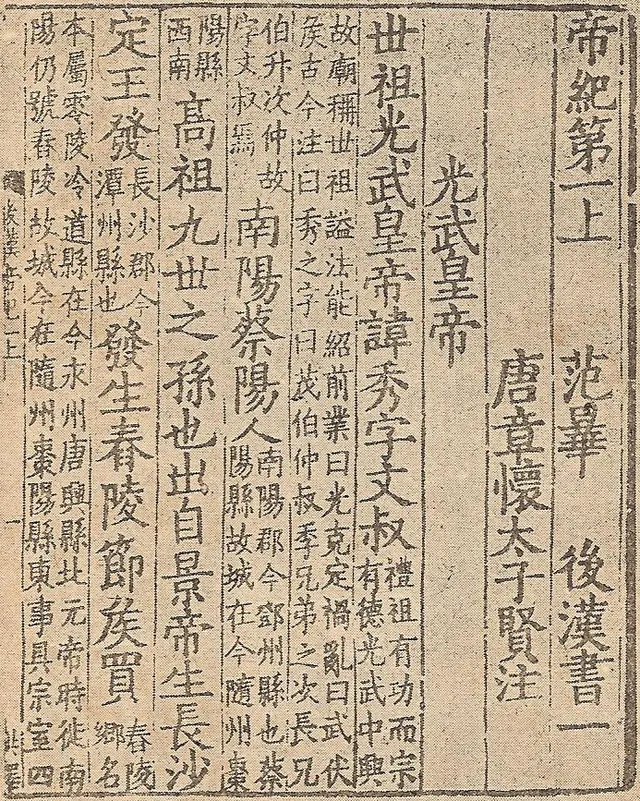 帝紀第一上　范曄　後漢書一
唐章懷太子賢注
光武皇帝
世祖光武皇帝諱秀字文叔
禮祖有功而宗
有德光武中興
故廟稱世祖謚法能紹前業曰光克定禍亂曰武伏
矦古今注曰秀之字曰茂伯仲叔季兄弟之次長兄
伯升次仲故
字文叔焉
南陽蔡陽人
南陽郡今鄧州縣也蔡
陽縣故城在今隨州棗
陽縣
西南
高祖九世之孫也出自景帝生長沙
定王發
長沙郡今
潭州縣也
發生舂陵節矦買
舂陵
鄉名
本屬零陵冷道縣在今永州唐興縣北元帝時徙南
陽仍號舂陵故城今在隨州棗陽縣東事具宗室四
一上
一